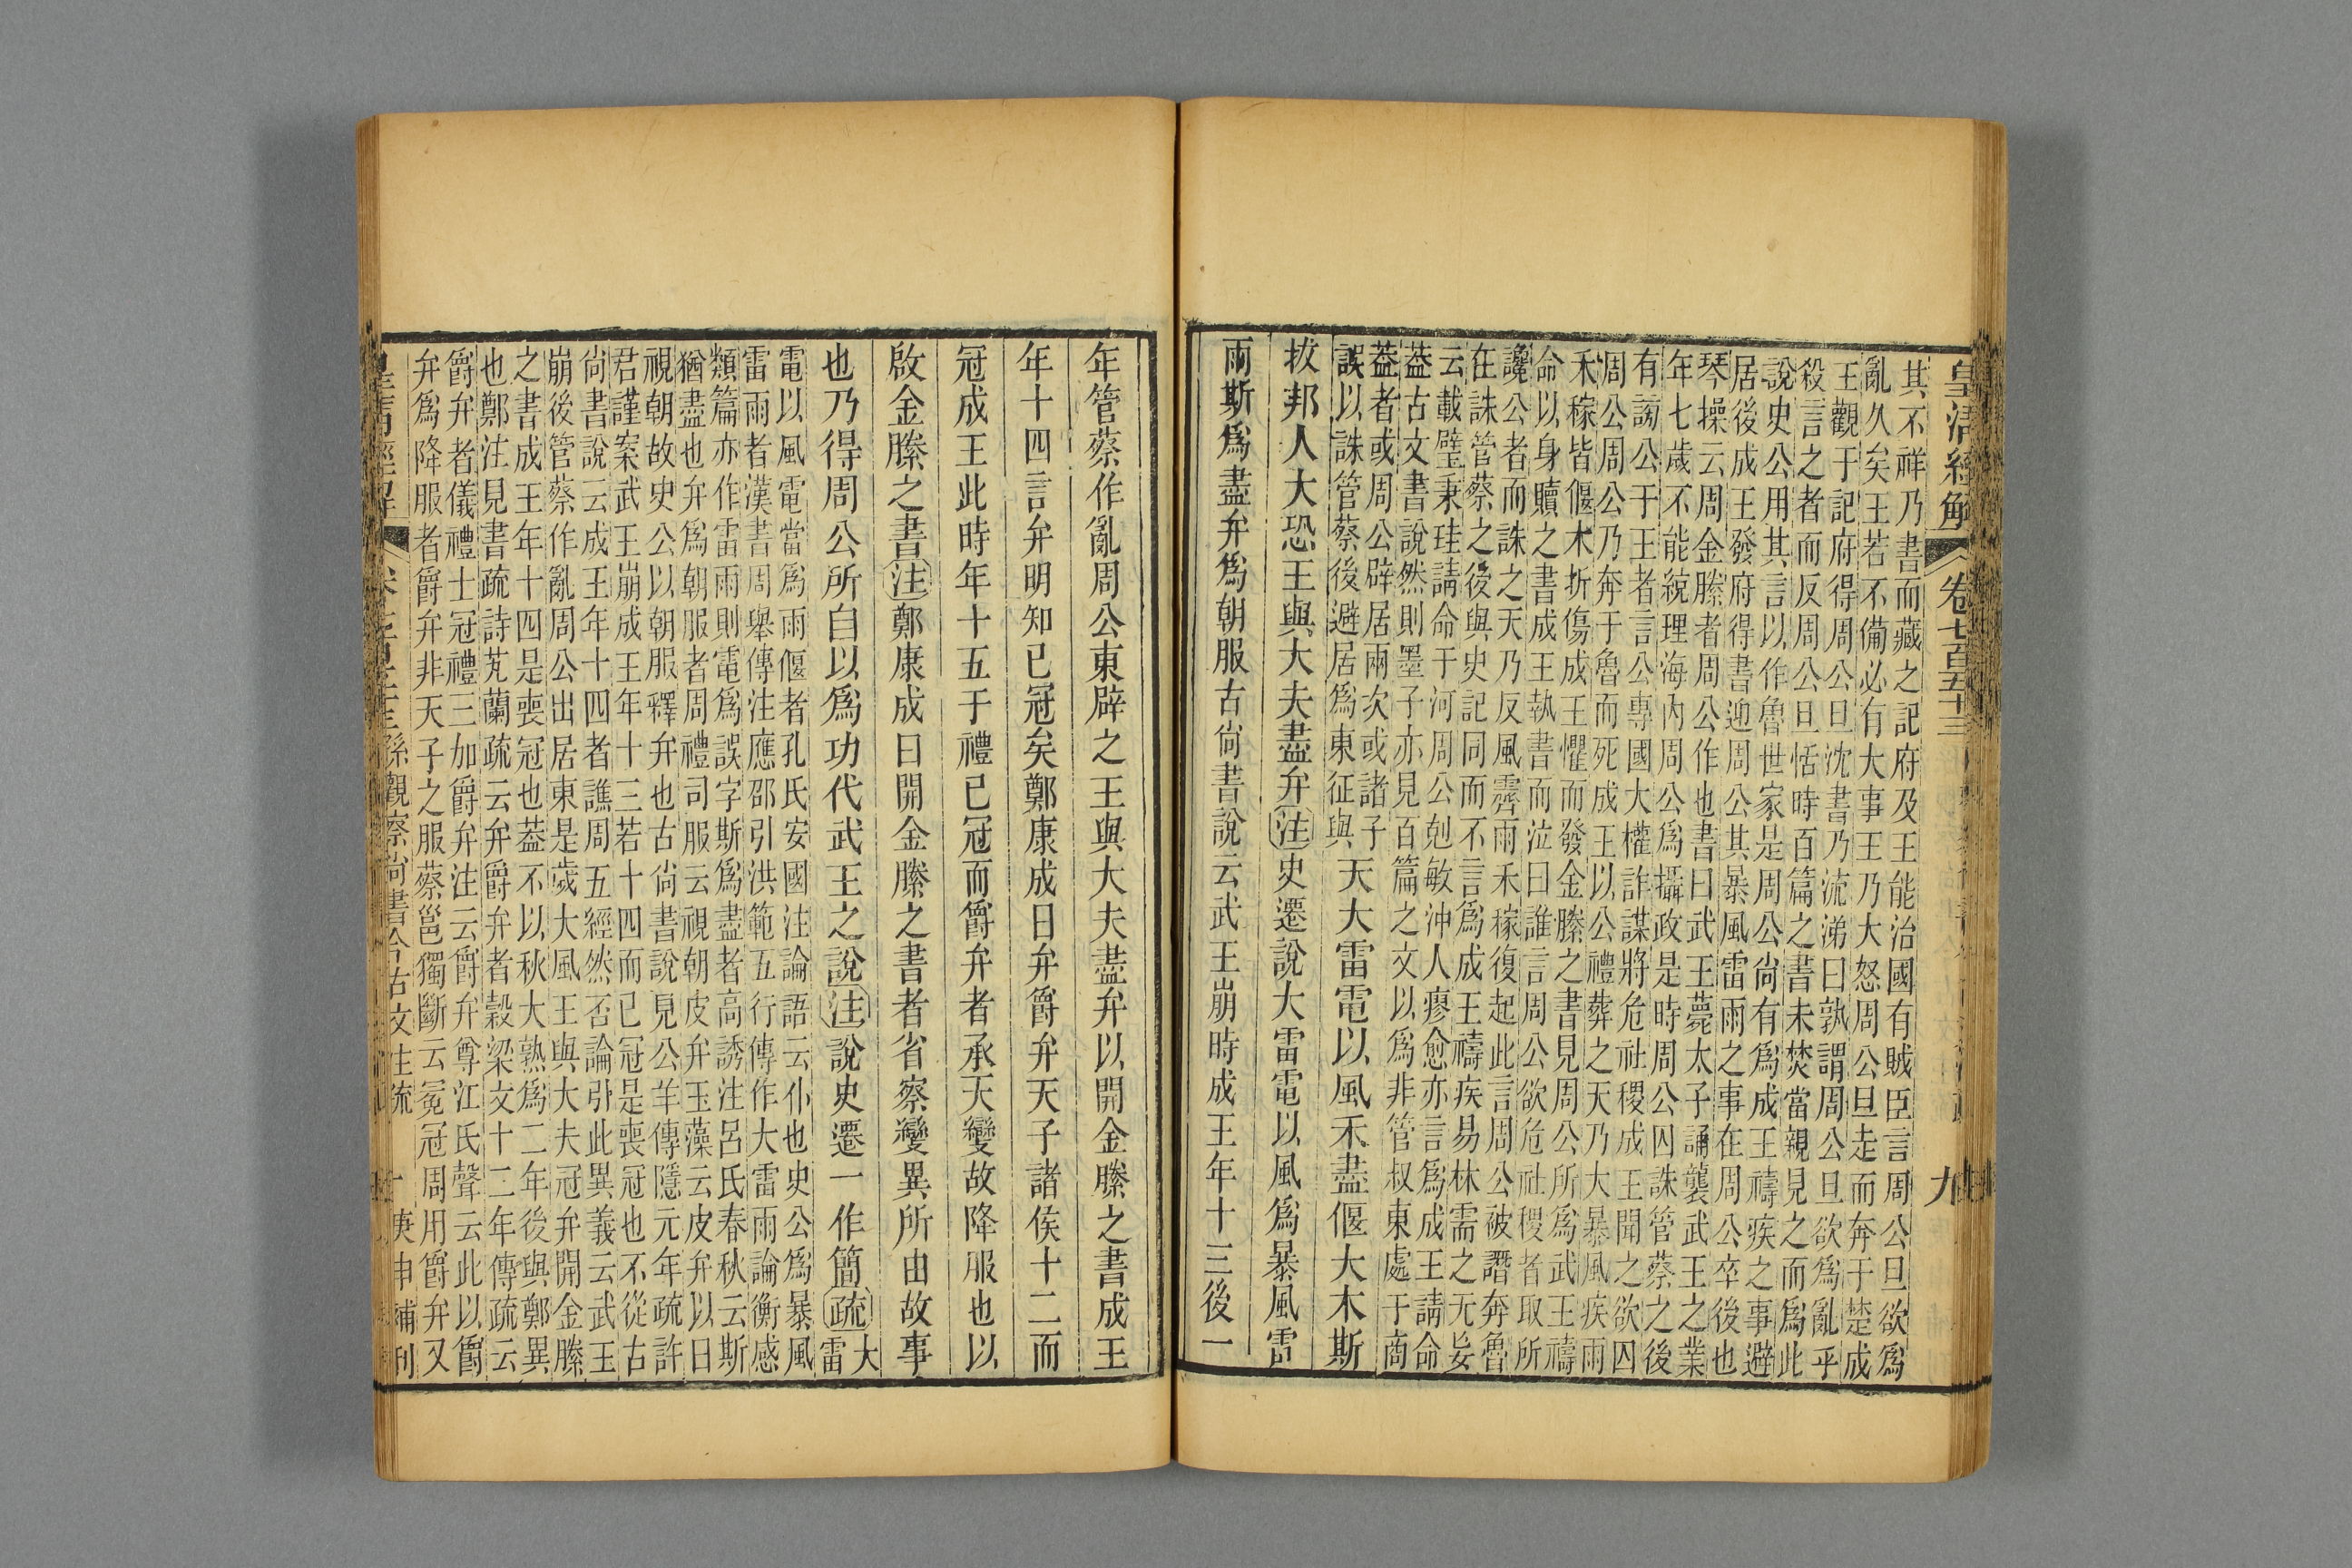 皇清經解
卷七百五十三
九
其不祥乃書而藏之記府及王能治國有賊臣言周公旦欲爲
亂久矣王若不備必有大事王乃大怒周公旦走而奔于楚成
王觀于記府得周公旦沈書乃流涕曰孰謂周公旦欲爲亂乎
殺言之者而反周公旦恬時百篇之書未焚當親見之而爲此
說史公用其言以作魯世家是周公尚有爲成王禱疾之事避
居後成王發府得書迎周公其暴風雷雨之事在周公卒後也
琴操云周金縢者周公作也書曰武王薨太子誦襲武王之業
年七歲不能統理海內周公爲攝政是時周公囚誅管蔡之後
有謗公于王者言公專國大權詐謀將危社稷成王聞之欲囚
周公周公乃奔于魯而死成王以公禮葬之天乃大暴風疾雨
禾稼皆偃木折傷成王懼而發金縢之書見周公所爲武王禱
命以身贖之書成王執書而泣曰誰言周公欲危社稷者取所
讒公者而誅之天乃反風霽雨禾稼復起此言周公被譖奔魯
在誅管蔡之後與史記同而不言爲成王禱疾易林需之无妄
云載璧秉珪請命于河周公剋敏沖人瘳愈亦言爲成王請命
葢古文書說然則墨子亦見百篇之文以爲非管叔東處于商
葢者或周公辟居兩次或諸子
誤以誅管蔡後避居爲東征與
天大雷電以風禾盡偃大木斯
拔邦人大恐王與大夫盡弁注史遷說大雷電以風爲暴風雷
雨斯爲盡弁爲朝服古尚書說云武王崩時成王年十三後一
年管蔡作亂周公東辟之王與大夫盡弁以開金縢之書成王
年十四言弁明知已冠矣鄭康成曰弁爵弁天子諸侯十二而
冠成王此時年十五于禮已冠而爵弁者承天變故降服也以
啟金縢之書注鄭康成曰開金縢之書者省察變異所由故事
也乃得周公所自以爲功代武王之說注說史遷一作簡疏大
雷
電以風電當爲雨偃者孔氏安國注論語云仆也史公爲暴風
雷雨者漢書周舉傳注應邵引洪範五行傳作大雷雨論衡感
類篇亦作雷雨則電爲誤字斯爲盡者高誘注呂氏春秋云斯
猶盡也弁爲朝服者周禮司服云視朝皮弁玉藻云皮弁以日
視朝故史公以朝服釋弁也古尚書說見公羊傳隱元年疏許
君謹案武王崩成王年十三若十四而已冠是喪冠也不從古
尚書說云成王年十四者譙周五經然否論引此異義云武王
崩後管蔡作亂周公出居東是歲大風王與大夫冠弁開金縢
之書成王年十四是喪冠也葢不以秋大熟爲二年後與鄭異
也鄭注見書疏詩芄蘭疏云弁爵弁者穀梁文十二年傳疏云
爵弁者儀禮士冠禮三加爵弁注云爵弁尊江氏聲云此以爵
弁爲降服者爵弁非天子之服蔡邕獨斷云冕冠周用爵弁又
孫觀察尚書今古文注疏
庚申補刊